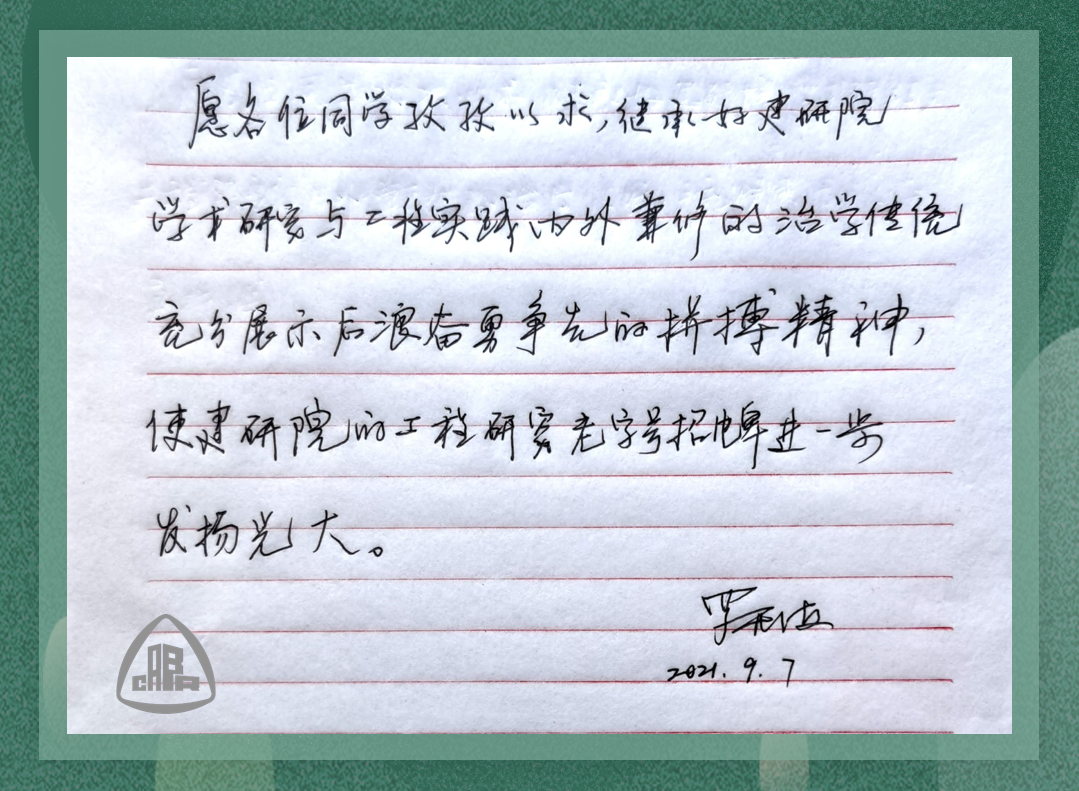 愿各位同学孜孜以求,继承好建研院
学术研究与工程实践内外兼修的治学传统
充分展示后浪奋勇争先的拼搏精神,
使建研院的工程研究老字号招牌进一步
发扬光大。
2021.9.7
CABR